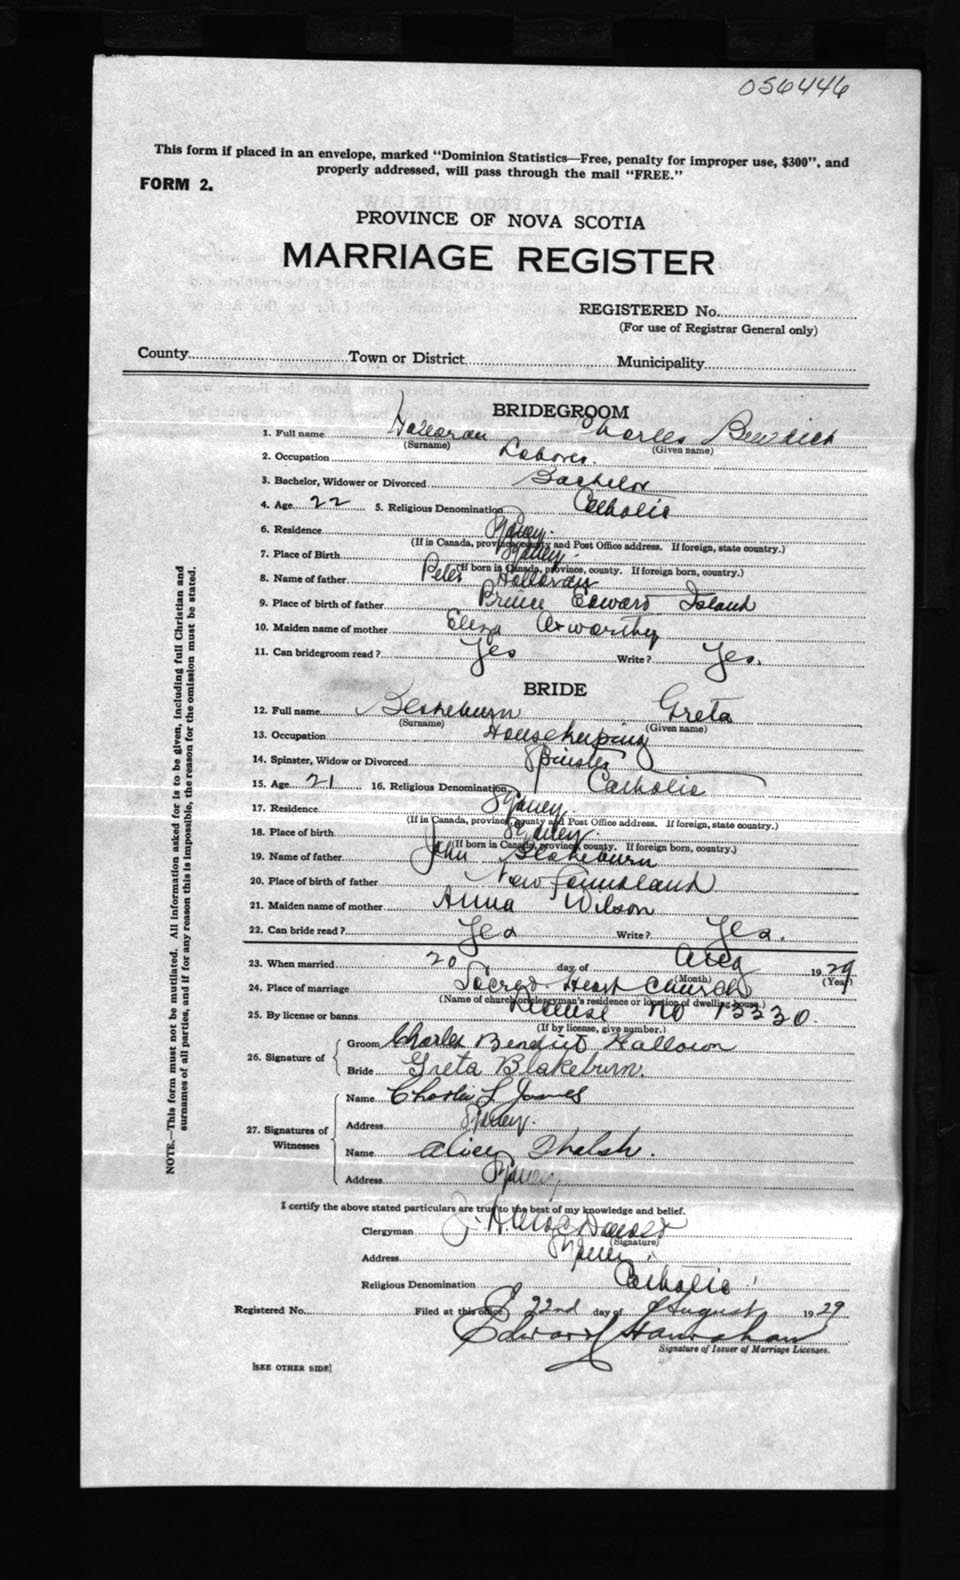 056446
This form if placed in an envelope, marked "Dominion Statistics—Free, penalty for improper use, $300", and
properly addressed, will pass through the mail "FREE."
FORM 2.
PROVINCE OF NOVA SCOTIA
MARRIAGE REGISTER
REGISTERED No.
(For use of Registrar General only)
County Town or District Municipality
BRIDEGROOM
1. Full name Halloran Charles Benedict
(Surname) (Given name)
2. Occupation Laborer.
3. Bachelor, Widower or Divorced Bachelor
4. Age 22 5. Religious Denomination Catholic
6. Residence Sydney.
(If in Canada, province, county and Post Office address. If foreign, state country.)
7. Place of Birth Sydney.
(If born in Canada, province, county. If foreign born, country.)
8. Name of father Peter Halloran
9. Place of birth of father Prince Edward Island
10. Maiden name of mother Eliza Axworthy
11. Can bridegroom read? Yes Write? Yes.
BRIDE
12. Full name Blakeburn Greta
(Surname) (Given name)
13. Occupation Housekeeping
14. Spinster, Widow or Divorced Spinster
15. Age 21 16. Religious Denomination Catholic
17. Residence Sydney.
(If in Canada, province, county and Post Office address. If foreign, state country.)
18. Place of birth Sydney.
(If born in Canada, province, county. If foreign born, country.)
19. Name of father John Blakeburn
20. Place of birth of father Newfoundland
21. Maiden name of mother Anna Wilson
22. Can bride read? Yes Write? Yes.
23. When married 20 day of Aug 1929
(Month) (Year)
24. Place of marriage Sacred Heart Church
(Name of church or clergyman's residence or location of dwelling house.)
25. By license or banns License No 13330.
(If by license, give number.)
26. Signature of Groom Charles Benedict Halloran
Bride Greta Blakeburn.
27. Signatures of Witnesses Name Charles L James
Address Sydney.
Name Alice
Address Sydney.
I certify the above stated particulars are true to the best of my knowledge and belief.
Clergyman J. H. MacDonald
(Signature)
Address Sydney.
Religious Denomination Catholic
Registered No. Filed at this office 22nd day of August 1929
Edward Hanrahan
Signature of Issuer of Marriage Licenses.
[SEE OTHER SIDE]
NOTE.—This form must not be mutilated. All information asked for is to be given, including full Christian and
surnames of all parties, and if for any reason this is impossible, the reason for the omission must be stated.